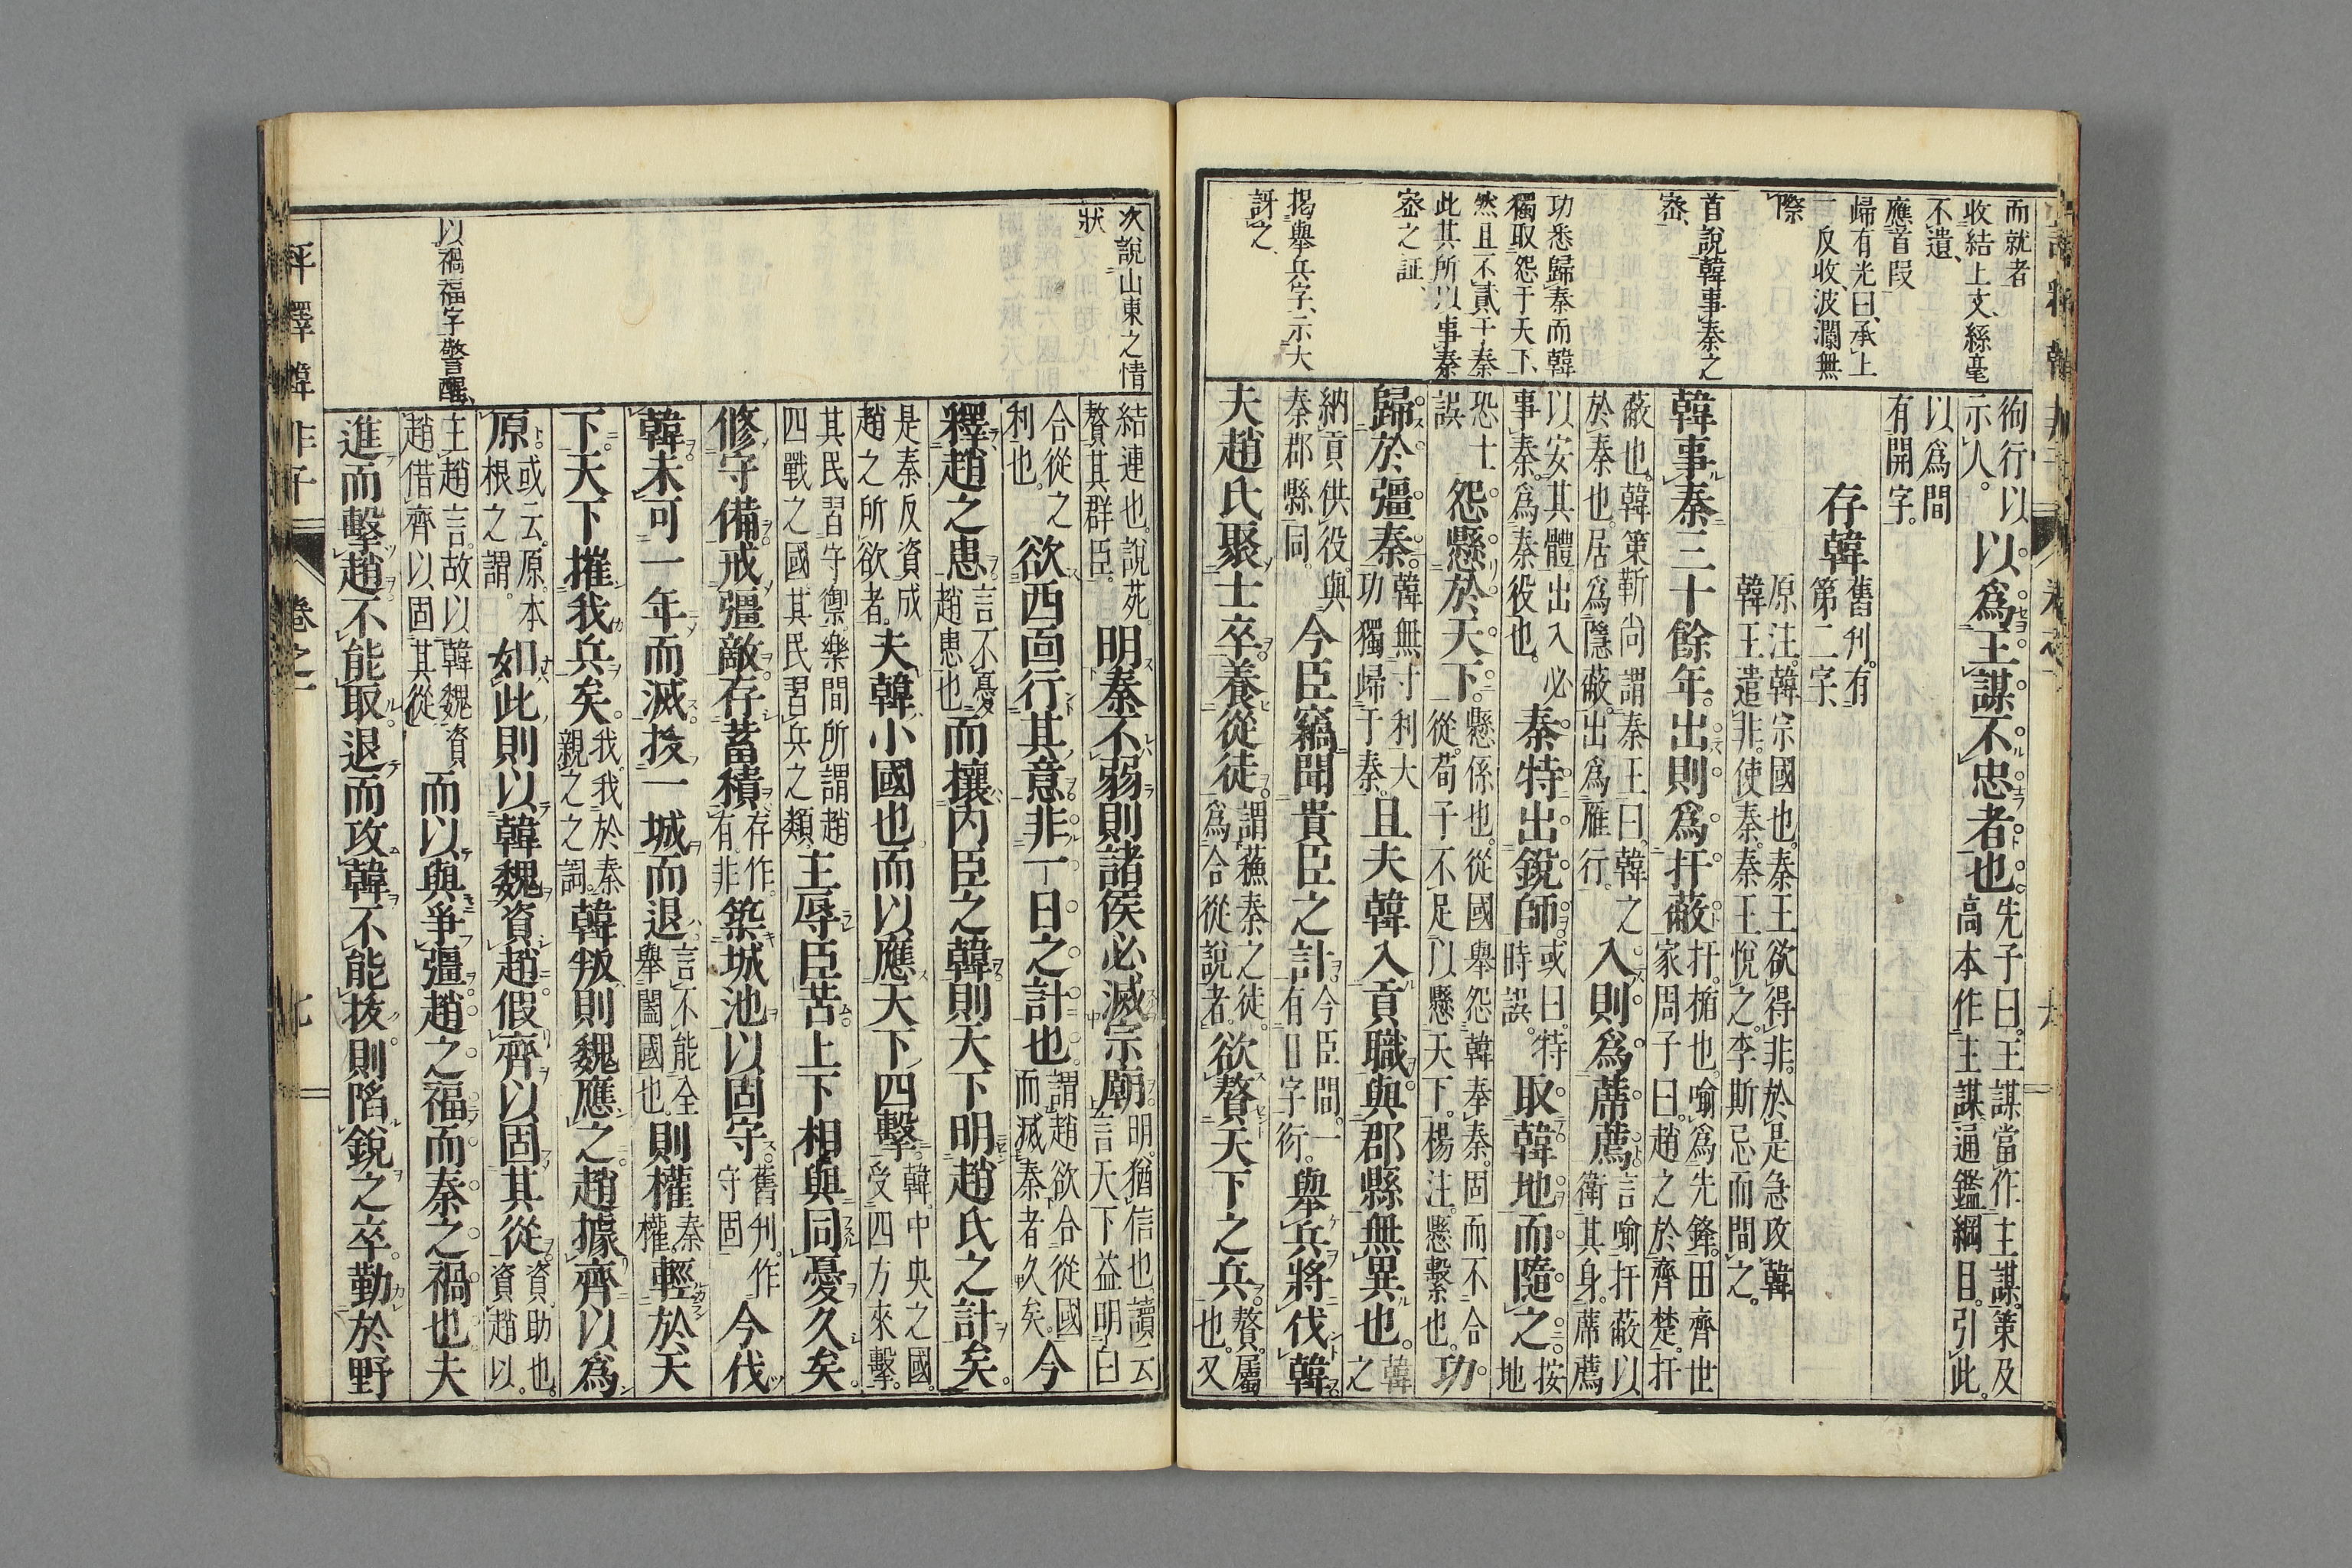 而就者
收結上文、絲毫
不遺、
應首段
歸有光曰、承上
一反收、波瀾無
際
首說韓事秦之
密、
功悉歸秦而韓
獨取怨于天下、
然且不貳于秦
此其所以事秦
密之証、
掲舉兵字、示大
訝之、
徇行以示人。以爲王謀不忠者也先子曰。王謀當作主謀。策及高本作主謀。通鑑綱目。引此。
以爲間有開字。
存韓 舊刋。有第二字、
原注。韓宗國也。秦王欲得非。於是急攻韓韓王遣非。使秦。秦王悅之。李斯忌而間之。
韓事秦三十餘年。出則爲扞蔽扞。楯也。喻爲先鋒。田齊世家周子曰。趙之於齊楚。扞
蔽也。韓策靳尚謂秦王曰。韓之於秦也。居爲隱蔽。出爲雁行。入則爲蓆薦。言喻扞蔽以衛其身。蓆薦
以安其體出入必事秦。爲秦役也。秦特出銳師或曰。特時誤。取韓地而隨之。按地
恐士誤怨懸於天下。懸係也。從國舉怨韓奉秦。固而不合從。荀子不足以懸天下。楊注。懸繫也。功
歸於彊秦。韓無寸利大功獨歸于秦。且夫韓入貢職與郡縣無異也。韓之
納貢供役。與秦郡縣同。今臣竊聞貴臣之計。今臣間。一有日字衍。舉兵將伐韓
夫趙氏聚士卒養從徒。謂蘓秦之徒。爲合從說者。欲贅天下之兵贅。屬也。又
次說山東之情
狀
以禍福字警醒、
結連也。說苑。贅其群臣。明秦不弱則諸侯必滅宗廟。明。猶信也。讀云言天下益明白
合從之利也。欲西面行其意非一日之計也。謂趙欲合從國而滅秦者久矣。今
釋趙之患言不憂趙患也而攘内臣之韓則天下明趙氏之計矣。
是秦反資成趙之所欲者。夫韓小國也而以應天下四擊韓。中央之國。受四方來擊。
其民習守禦。樂間所謂趙四戰之國其民習兵之類、主辱臣苦上下相與同憂久矣。
修守備戒彊敵存蓄積存作。有。非築城池以固守。舊刋。作守固今伐
韓未可一年而滅拔一城而退言不能全舉闔國也。則權秦權。輕於天
下。天下摧我兵矣。我。我於秦親之之詞。韓叛則魏應之趙據齊以爲
原或云。原。本根之謂。如此則以韓魏資趙假齊以固其從資。助也。資趙以。
王趙言。故以韓魏資趙借齊以固其從而以與爭彊趙之福而秦之禍也夫
進而擊趙不能取退而攻韓不能拔則陷銳之卒。勤於野
評釋韓非子 卷之一